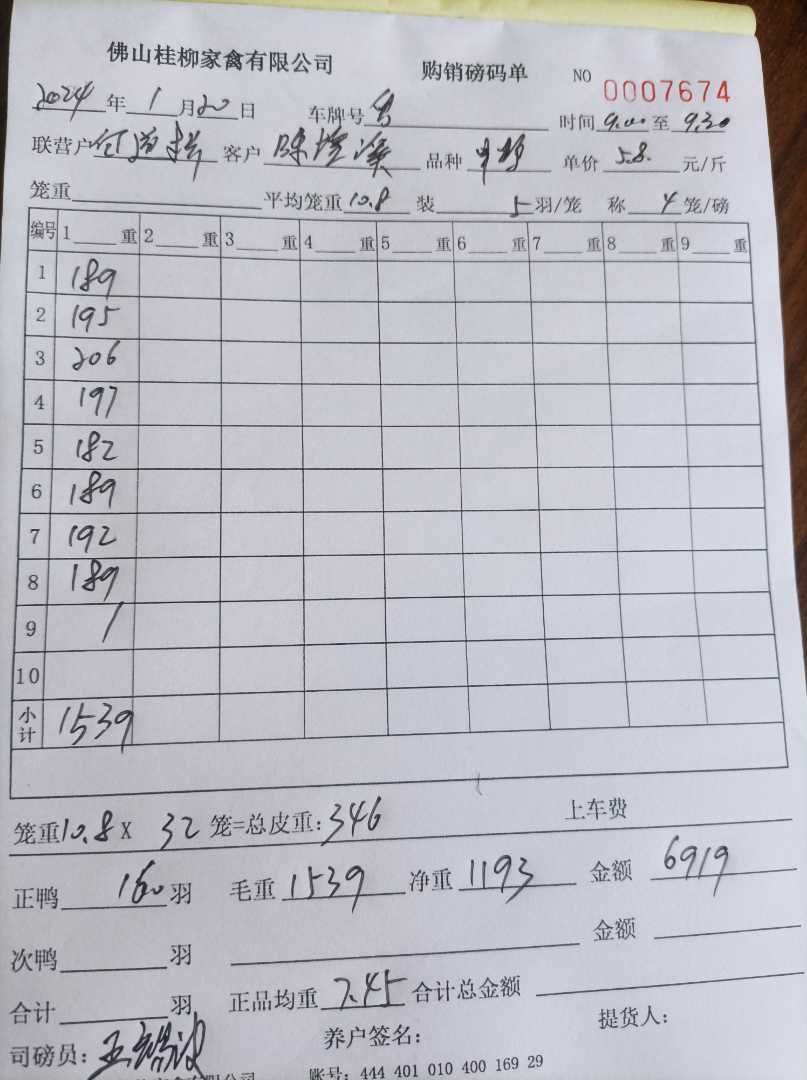 佛山桂柳家禽有限公司 购销磅码单 NO 0007674
2024年1月20日 车牌号 时间9.00至9.30
联营户 客户 品种 单价5.8.元/斤
笼重 平均笼重10.8 装5羽/笼 称4笼/磅
编号 1 重 2 重 3 重 4 重 5 重 6 重 7 重 8 重 9 重
1 189
2 195
3 206
4 197
5 182
6 189
7 192
8 189
9 /
10
小计 1539
笼重10.8 X 32笼=总皮重:346 上车费
正鸭160羽 毛重1539 净重1193 金额6919
次鸭 羽 金额
合计 羽 正品均重7.45 合计总金额
司磅员: 养户签名: 提货人:
账号: 444 401 010 400 169 29